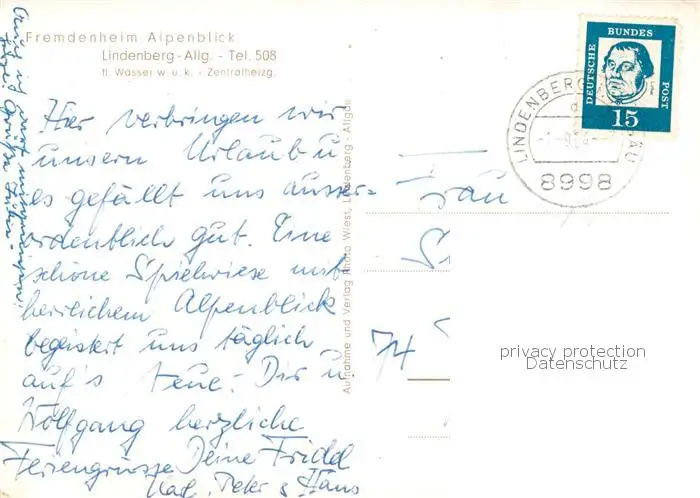 Fremdenheim Alpenblick
Lindenberg-Allg. - Tel. 508
fl. Wasser w. u. k. - Zentralheizg.
Hier verbringen wir
unsern Urlaub u.
es gefällt uns ausser-
ordentlich gut. Eine
schöne Spielwiese mit
herrlichem Alpenblick
begeistert uns täglich
auf's Neue. Dir u.
Wolfgang herzliche
Feriengrüsse Deine Fridel
Karl, Peter & Hans
Auch ich darf mitgeniessen!
Grüße
Aufnahme und Verlag Photo Wiest, Lindenberg-Allgäu
DEUTSCHE BUNDES POST
15
LINDENBERG
8998
Frau
74
privacy protection
Datenschutz